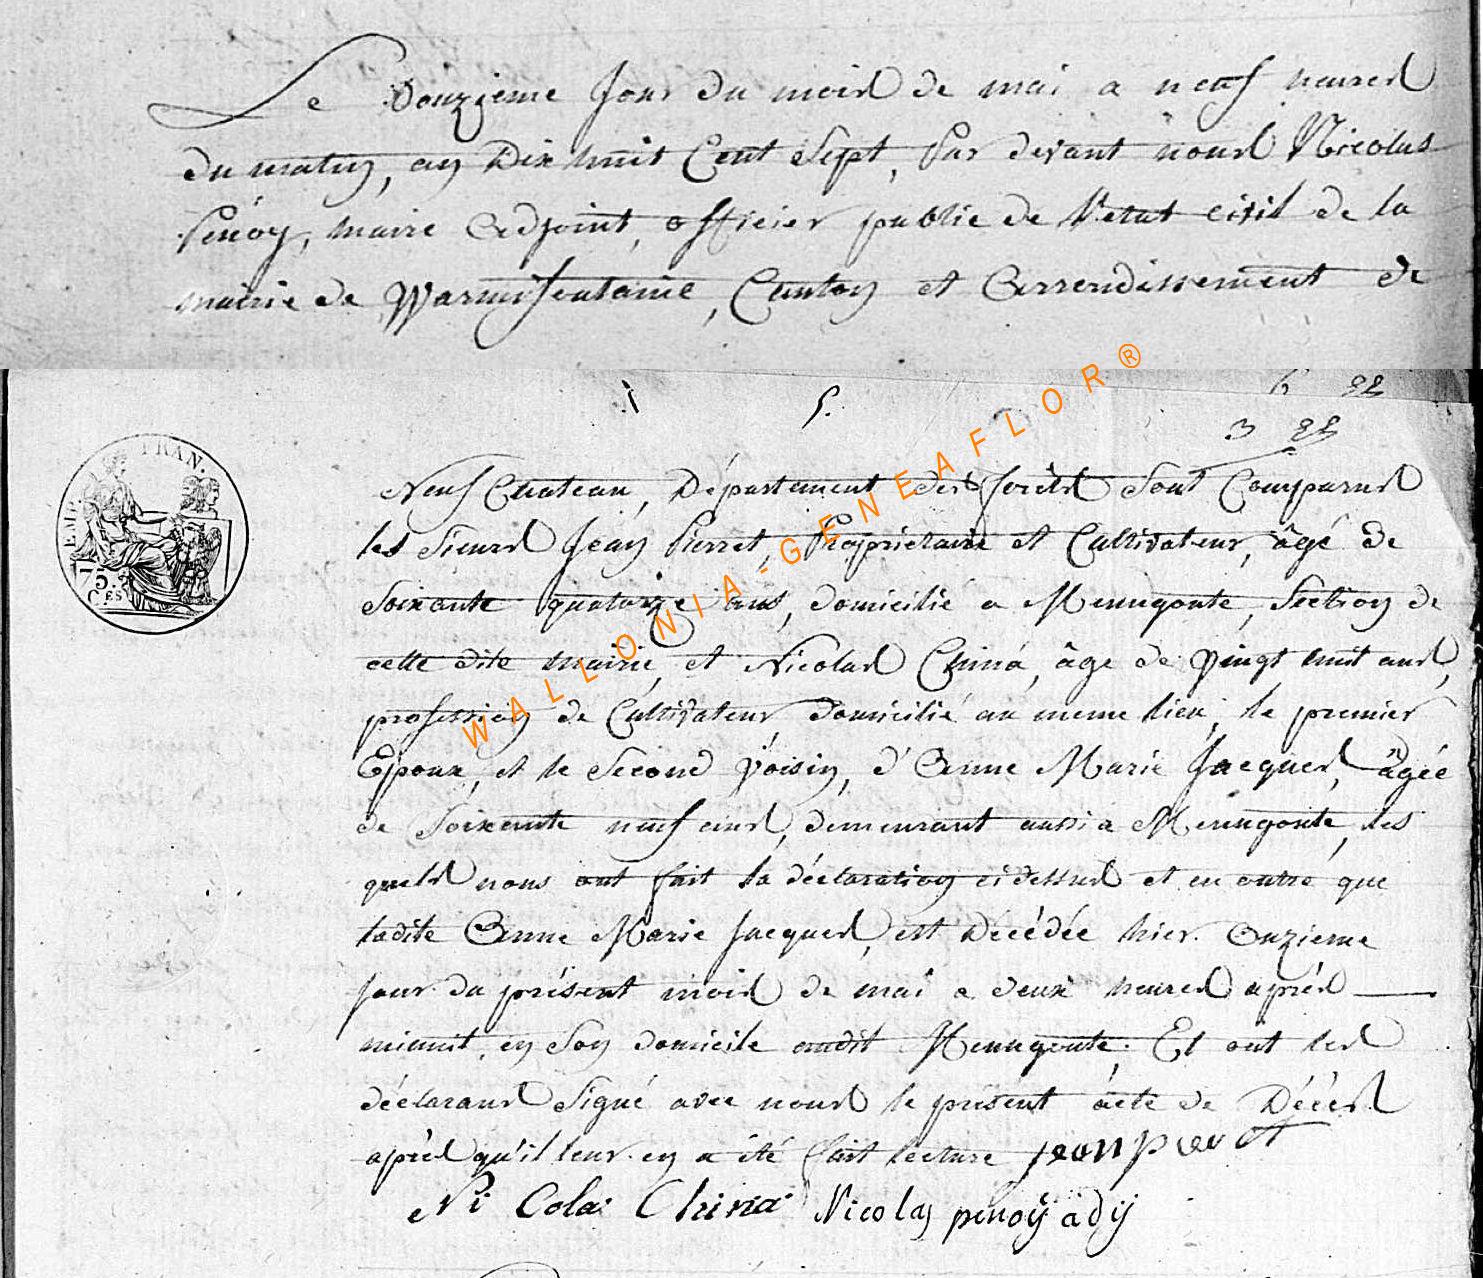 Le Douzieme Jour du mois de mai a neuf heures
du matin, an Dix huit Cent Sept, Par devant nous Nicolas
Penoy, maire Adjoint, officier public de l'etat civil de la
mairie de Warmifontaine, Canton et Arrondissement de
5.
3
Neuf Chateau, Département des forêts Sont Comparus
les Sieurs Jean Pierret, Propriétaire et Cultivateur, âgé de
Soixante quatorze ans, domicilié a Menugoute, Section de
cette dite mairie, et Nicolas China, âge de vingt huit ans,
profession de Cultivateur domicilié au meme lieu, le premier
Epoux, et le Second voisin, d'Anne Marie Jacques, âgée
de Soixante neuf ans, demeurant aussi a Menugoute, les
quels nous ont fait la déclaration ci dessus et en outre que
ladite Anne Marie Jacques, est Décédée hier Onzieme
jour du présent mois de mai a deux heures après
minuit, en Son domicile audit Menugoute. Et ont les
déclarans Signé avec nous le présent acte de Décès
après qu'il leur en a été fait lecture jean pierret
Ni Cola China Nicolas penoÿ adj
FRAN.
EMP.
75.
C.ES
WALLONIA-GENEAFLOR®